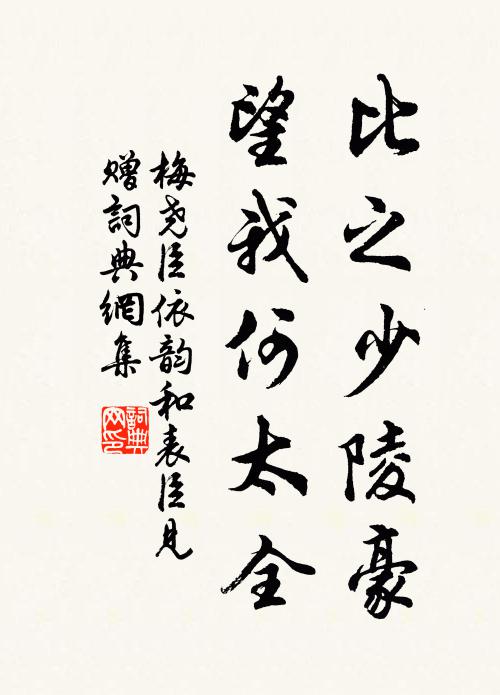 比之少陵豪
望我何太全
梅尧臣依韵和表臣見
赠詞典網集
詞典
网印